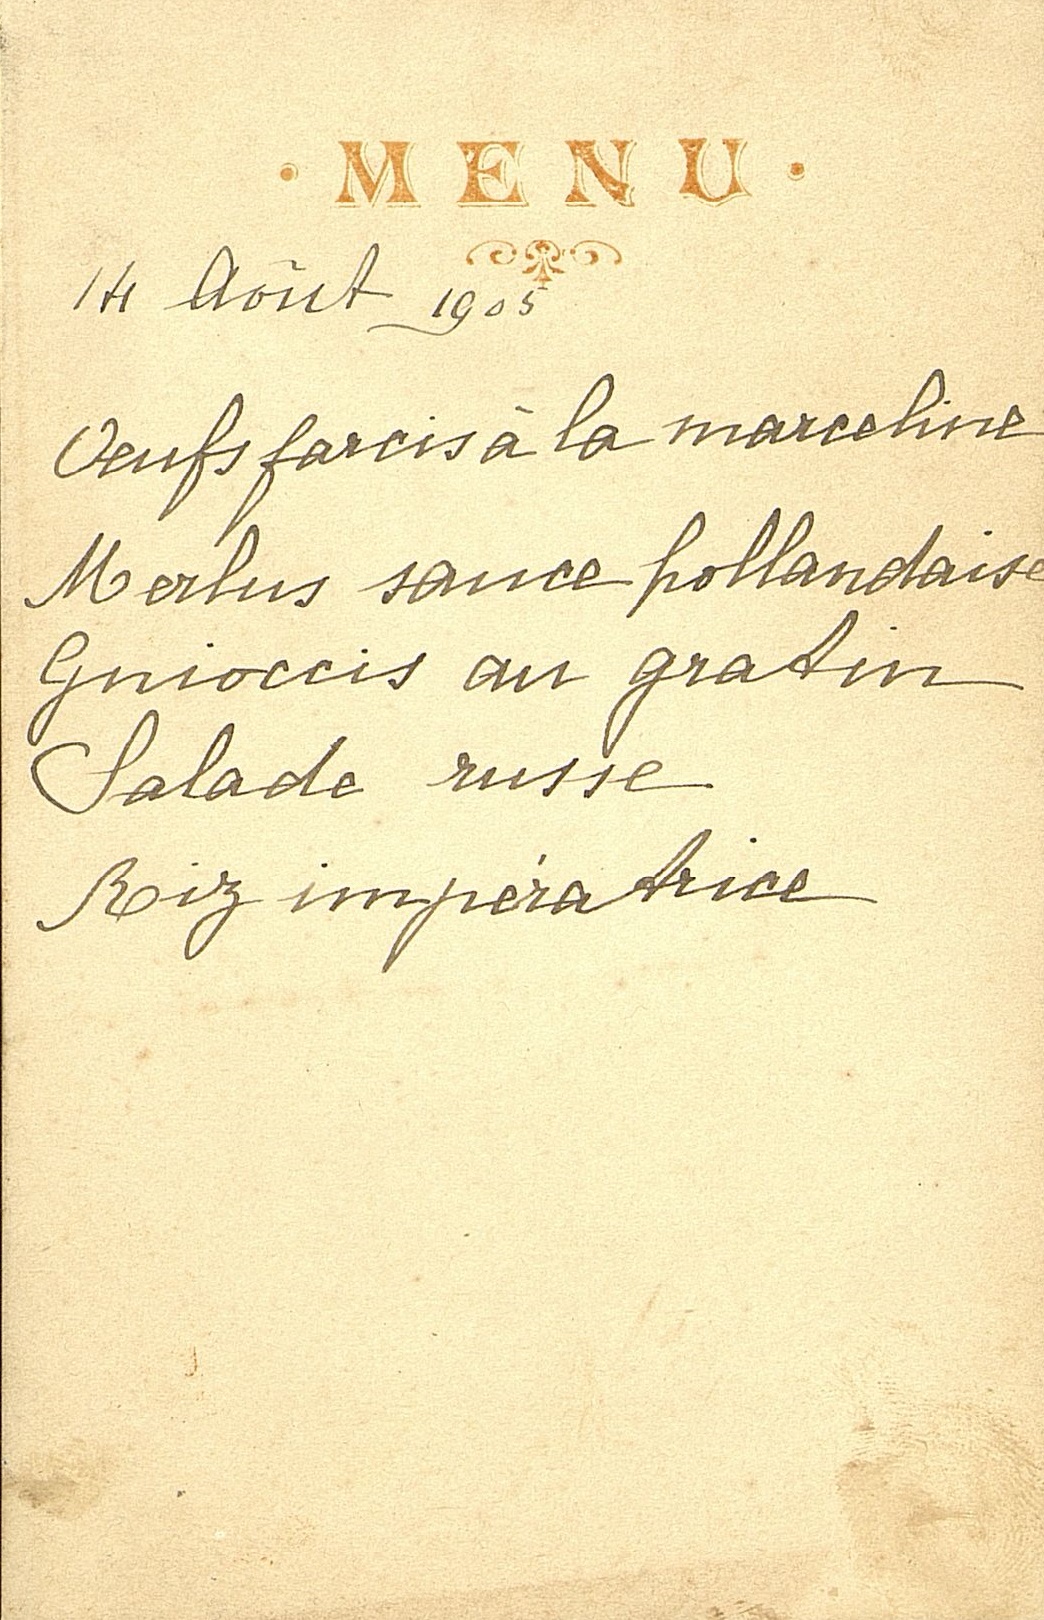 · MENU ·
14 Août 1905
Oeufs farcis à la marceline
Merlus sauce hollandaise
Gnioccis au gratin
Salade russe
Riz impératrice